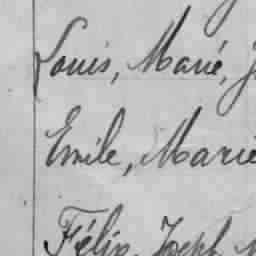 Louis, Marie,
Emile, Marie
Félix, Joseph